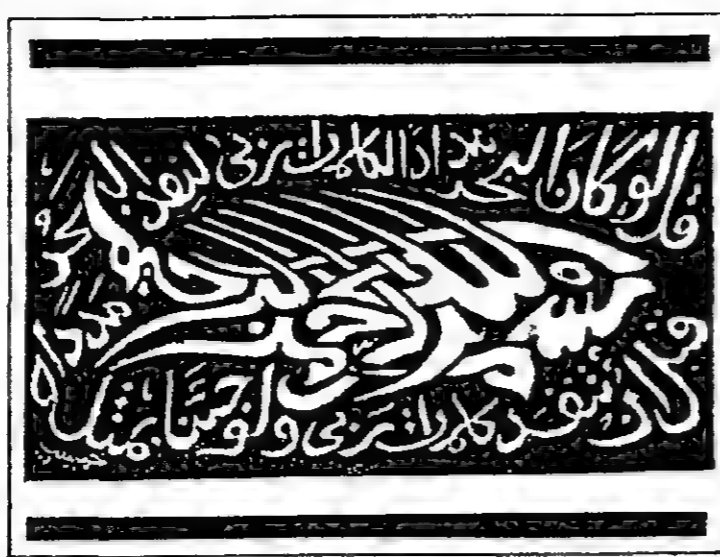 قل لو كان البحر مدادا لكلمات ربي لنفد البحر
بسم الله الرحمن الرحيم
قبل أن تنفد كلمات ربي ولو جئنا بمثله
مددا